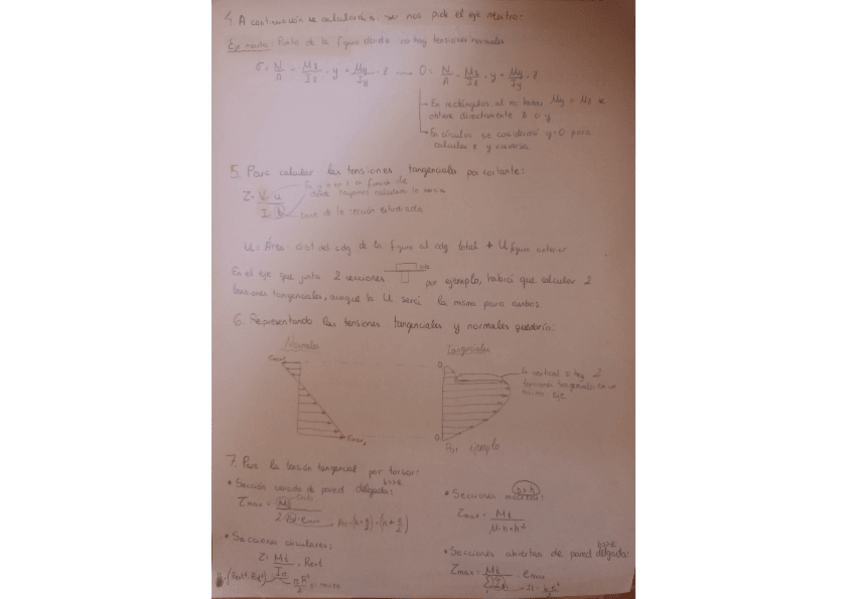 4. A continuación se calculará si se nos pide el eje neutro:
Eje neutro: Punto de la figura donde no hay tensiones normales
σ = N/A - Mz/Iz · y + My/Iy · z → 0 = N/A - Mz/Iz · y + My/Iy · z
→ En rectángulos, al no haber My o Mz se
obtiene directamente z o y
→ En círculos se considerará y=0 para
calcular z y viceversa
5. Para calcular las tensiones tangenciales por cortante:
donde hayamos calculado la
τ = V · u / I · b
base de la sección estudiada
U = Área · dist del cdg de la figura al cdg total + U figura anterior
En el eje que junta 2 secciones por ejemplo, habrá que calcular 2
tensiones tangenciales, aunque la U será la misma para ambos
6. Representando las tensiones tangenciales y normales quedaría:
Normales
Tangenciales
σmax
0
La vertical si hay 2
tensiones tangenciales en un
mismo eje
σmax
0
Por ejemplo
7. Para la tensión tangencial por torsor:
• Sección cerrada de pared delgada:
τmax = Mt
• Secciones macizas:
τmax = Mt / μ · h · b²
• Secciones circulares:
τ = Mt / Io · Rext
• Secciones abiertas de pared delgada:
τmax = Mt · emax